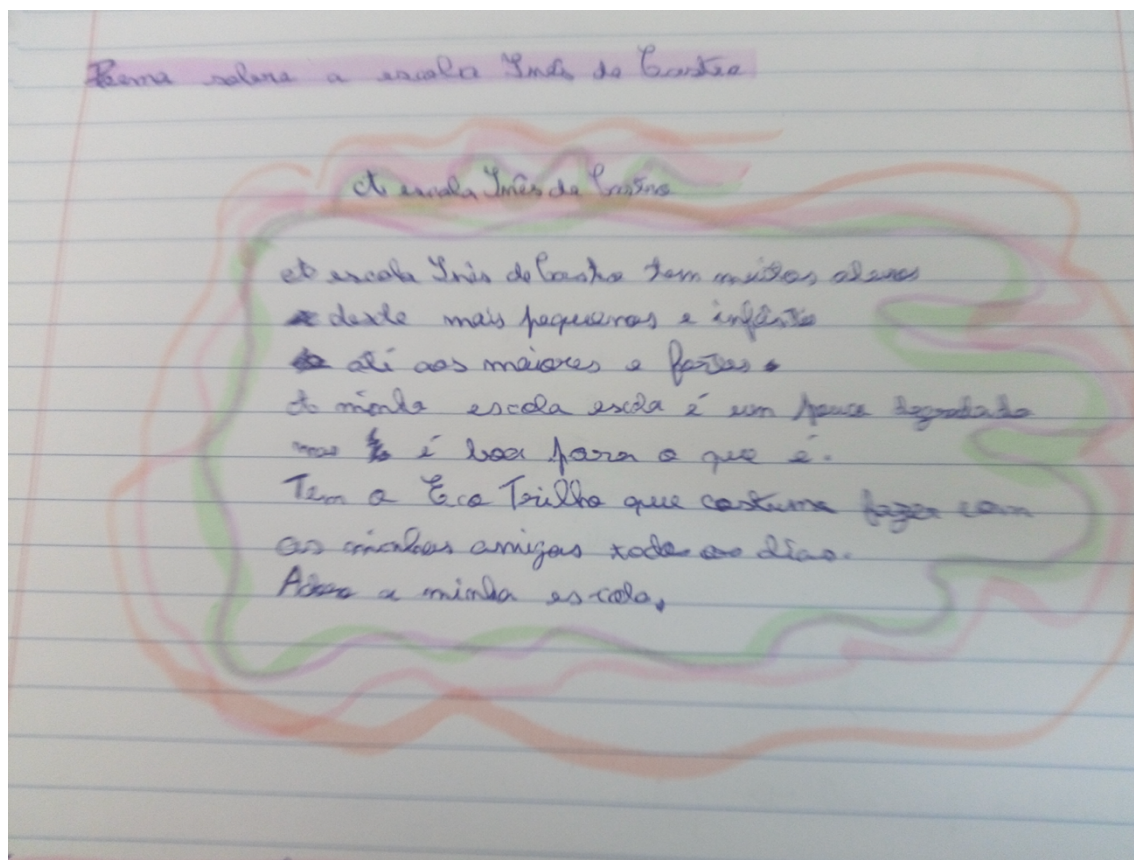 Poema sobre a escola Inês de Castro
A escola Inês de Castro
A escola Inês de Castro tem muitos alunos
desde mais pequenos e infântis
até aos maiores e fortes.
A minha escola escola é um pouco degradada
mas é boa para o que é.
Tem o Eco Trilho que costumo fazer com
as minhas amigas todo os dias.
Adoro a minha escola.